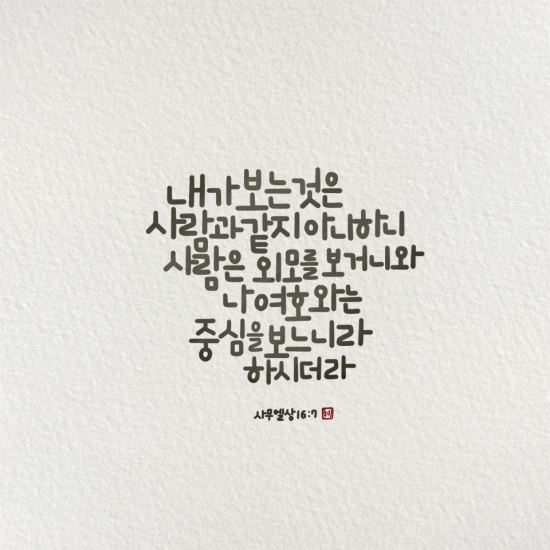 내가 보는 것은
사람과 같지 아니하니
사람은 외모를 보거니와
나 여호와는
중심을 보느니라
하시더라
사무엘상 16:7